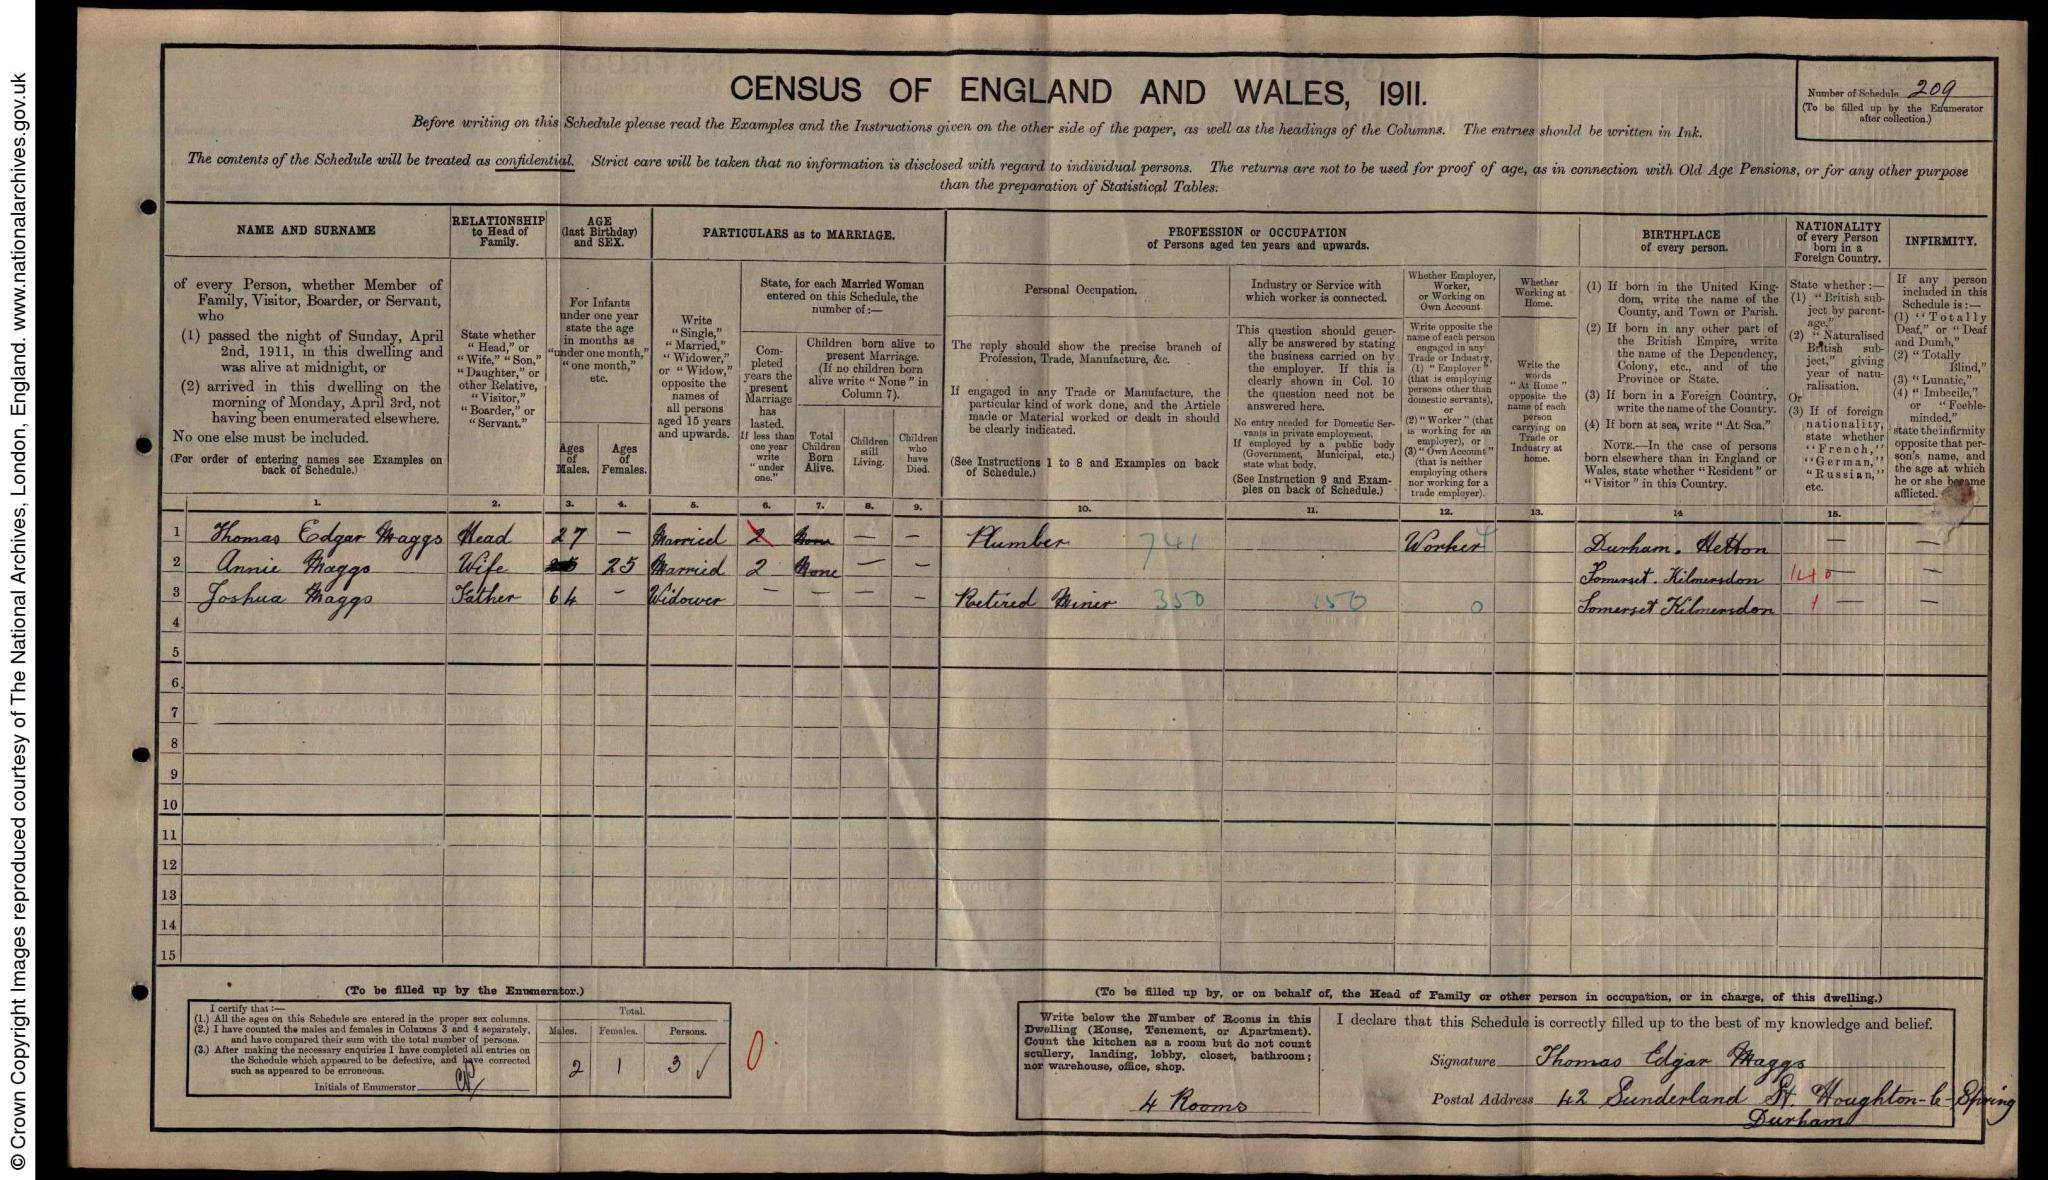 CENSUS OF ENGLAND AND WALES, 1911.
Number of Schedule 209
(To be filled up by the Enumerator
after collection.)
Before writing on this Schedule please read the Examples and the Instructions given on the other side of the paper, as well as the headings of the Columns. The entries should be written in Ink.
The contents of the Schedule will be treated as confidential. Strict care will be taken that no information is disclosed with regard to individual persons. The returns are not to be used for proof of age, as in connection with Old Age Pensions, or for any other purpose
than the preparation of Statistical Tables.
NAME AND SURNAME
of every Person, whether Member of
Family, Visitor, Boarder, or Servant,
who
(1) passed the night of Sunday, April
2nd, 1911, in this dwelling and
was alive at midnight, or
(2) arrived in this dwelling on the
morning of Monday, April 3rd, not
having been enumerated elsewhere.
No one else must be included.
(For order of entering names see Examples on
back of Schedule.)
RELATIONSHIP
to Head of
Family.
State whether
"Head," or
"Wife," "Son,"
"Daughter," or
other Relative,
"Visitor,"
"Boarder," or
"Servant."
AGE
(last Birthday)
and SEX.
For Infants
under one year
state the age
in months as
"under one month,"
"one month,"
etc.
Ages
of
Males.
Ages
of
Females.
PARTICULARS as to MARRIAGE.
Write
"Single,"
"Married,"
"Widower,"
or "Widow,"
opposite the
names of
all persons
aged 15 years
and upwards.
State, for each Married Woman
entered on this Schedule, the
number of:—
Com-
pleted
years the
present
Marriage
has
lasted.
If less than
one year
write
"under
one."
Children born alive to
present Marriage.
(If no children born
alive write "None" in
Column 7).
Total
Children
Born
Alive.
Children
still
Living.
Children
who
have
Died.
PROFESSION or OCCUPATION
of Persons aged ten years and upwards.
Personal Occupation.
The reply should show the precise branch of
Profession, Trade, Manufacture, &c.
If engaged in any Trade or Manufacture, the
particular kind of work done, and the Article
made or Material worked or dealt in should
be clearly indicated.
(See Instructions 1 to 8 and Examples on back
of Schedule.)
Industry or Service with
which worker is connected.
This question should gener-
ally be answered by stating
the business carried on by
the employer. If this is
clearly shown in Col. 10
the question need not be
answered here.
No entry needed for Domestic Ser-
vants in private employment.
If employed by a public body
(Government, Municipal, etc.)
state what body.
(See Instruction 9 and Exam-
ples on back of Schedule.)
Whether Employer,
Worker,
or Working on
Own Account
Write opposite the
name of each person
engaged in any
Trade or Industry,
(1) "Employer"
(that is employing
persons other than
domestic servants),
or
(2) "Worker" (that
is working for an
employer), or
(3) "Own Account"
(that is neither
employing others
nor working for a
trade employer).
Whether
Working at
Home.
Write the
words
"At Home"
opposite the
name of each
person
carrying on
Trade or
Industry at
home.
BIRTHPLACE
of every person.
(1) If born in the United King-
dom, write the name of the
County, and Town or Parish.
(2) If born in any other part of
the British Empire, write
the name of the Dependency,
Colony, etc., and of the
Province or State.
(3) If born in a Foreign Country,
write the name of the Country.
(4) If born at sea, write "At Sea."
NOTE.—In the case of persons
born elsewhere than in England or
Wales, state whether "Resident" or
"Visitor" in this Country.
NATIONALITY
of every Person
born in a
Foreign Country.
State whether:—
(1) "British sub-
ject by parent-
age,"
(2) "Naturalised
British sub-
ject," giving
year of natu-
ralisation.
Or
(3) If of foreign
nationality,
state whether
"French,"
"German,"
"Russian,"
etc.
INFIRMITY.
If any person
included in this
Schedule is:—
(1) "Totally
Deaf," or "Deaf
and Dumb,"
(2) "Totally
Blind,"
(3) "Lunatic,"
(4) "Imbecile,"
or "Feeble-
minded,"
state the infirmity
opposite that per-
son's name, and
the age at which
he or she became
afflicted.
1. 2. 3. 4. 5. 6. 7. 8. 9. 10. 11. 12. 13. 14 15.
1 Thomas Edgar Maggs Head 27 — Married 2 None — — Plumber 741 Worker Durham. Hetton — —
2 Annie Maggs Wife 25 Married 2 None — — Somerset. Kilmersdon 140 — —
3 Joshua Maggs Father 64 - Widower — — — — Retired Miner 350 150 0 Somerset Kilmersdon 1 — —
4
5
6
7
8
9
10
11
12
13
14
15
(To be filled up by the Enumerator.)
I certify that:—
(1.) All the ages on this Schedule are entered in the proper sex columns.
(2.) I have counted the males and females in Columns 3 and 4 separately,
and have compared their sum with the total number of persons.
(3.) After making the necessary enquiries I have completed all entries on
the Schedule which appeared to be defective, and have corrected
such as appeared to be erroneous.
Initials of Enumerator
Total.
Males. Females. Persons.
2 1 3
0
(To be filled up by, or on behalf of, the Head of Family or other person in occupation, or in charge, of this dwelling.)
Write below the Number of Rooms in this
Dwelling (House, Tenement, or Apartment).
Count the kitchen as a room but do not count
scullery, landing, lobby, closet, bathroom;
nor warehouse, office, shop.
4 Rooms
I declare that this Schedule is correctly filled up to the best of my knowledge and belief.
Signature Thomas Edgar Maggs
Postal Address 42 Sunderland St. Houghton-le-Spring
Durham
© Crown Copyright Images reproduced courtesy of The National Archives, London, England. www.nationalarchives.gov.uk